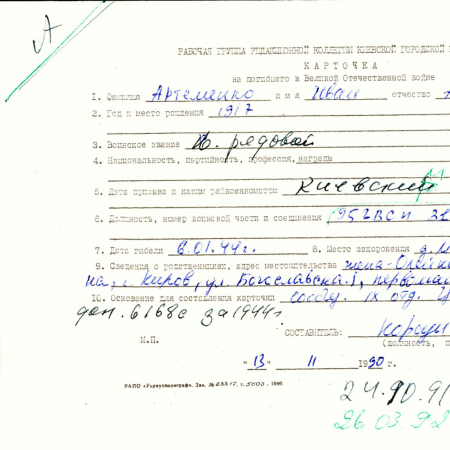 РАБОЧАЯ ГРУППА РЕДАКЦИОННОЙ КОЛЛЕГИИ КИЕВСКОЙ ГОРОДСКОЙ
КАРТОЧКА
на погибшего в Великой Отечественной войне
1. Фамилия Артеменко имя Иван отчество
2. Год и место рождения 1917
3. Воинское звание рядовой
4. Национальность, партийность, профессия, награды
5. Дата призыва и каким райвоенкоматом Киевский
6. Должность, номер воинской части и соединения
7. Дата гибели 6.01.44г. 8. Место захоронения д.
9. Сведения о родственниках, адрес местожительства жена -
на, г. Киров, ул. Богославская 1,
10. Основание для составления карточки IX отд.
дон. 6168с за 1944г
СОСТАВИТЕЛЬ:
(должность,
М.П.
"13" 11 1990г.
РАПО «Укрвузполиграф». Зак. т. 5000. 1990.
24.10.91
26.03.92